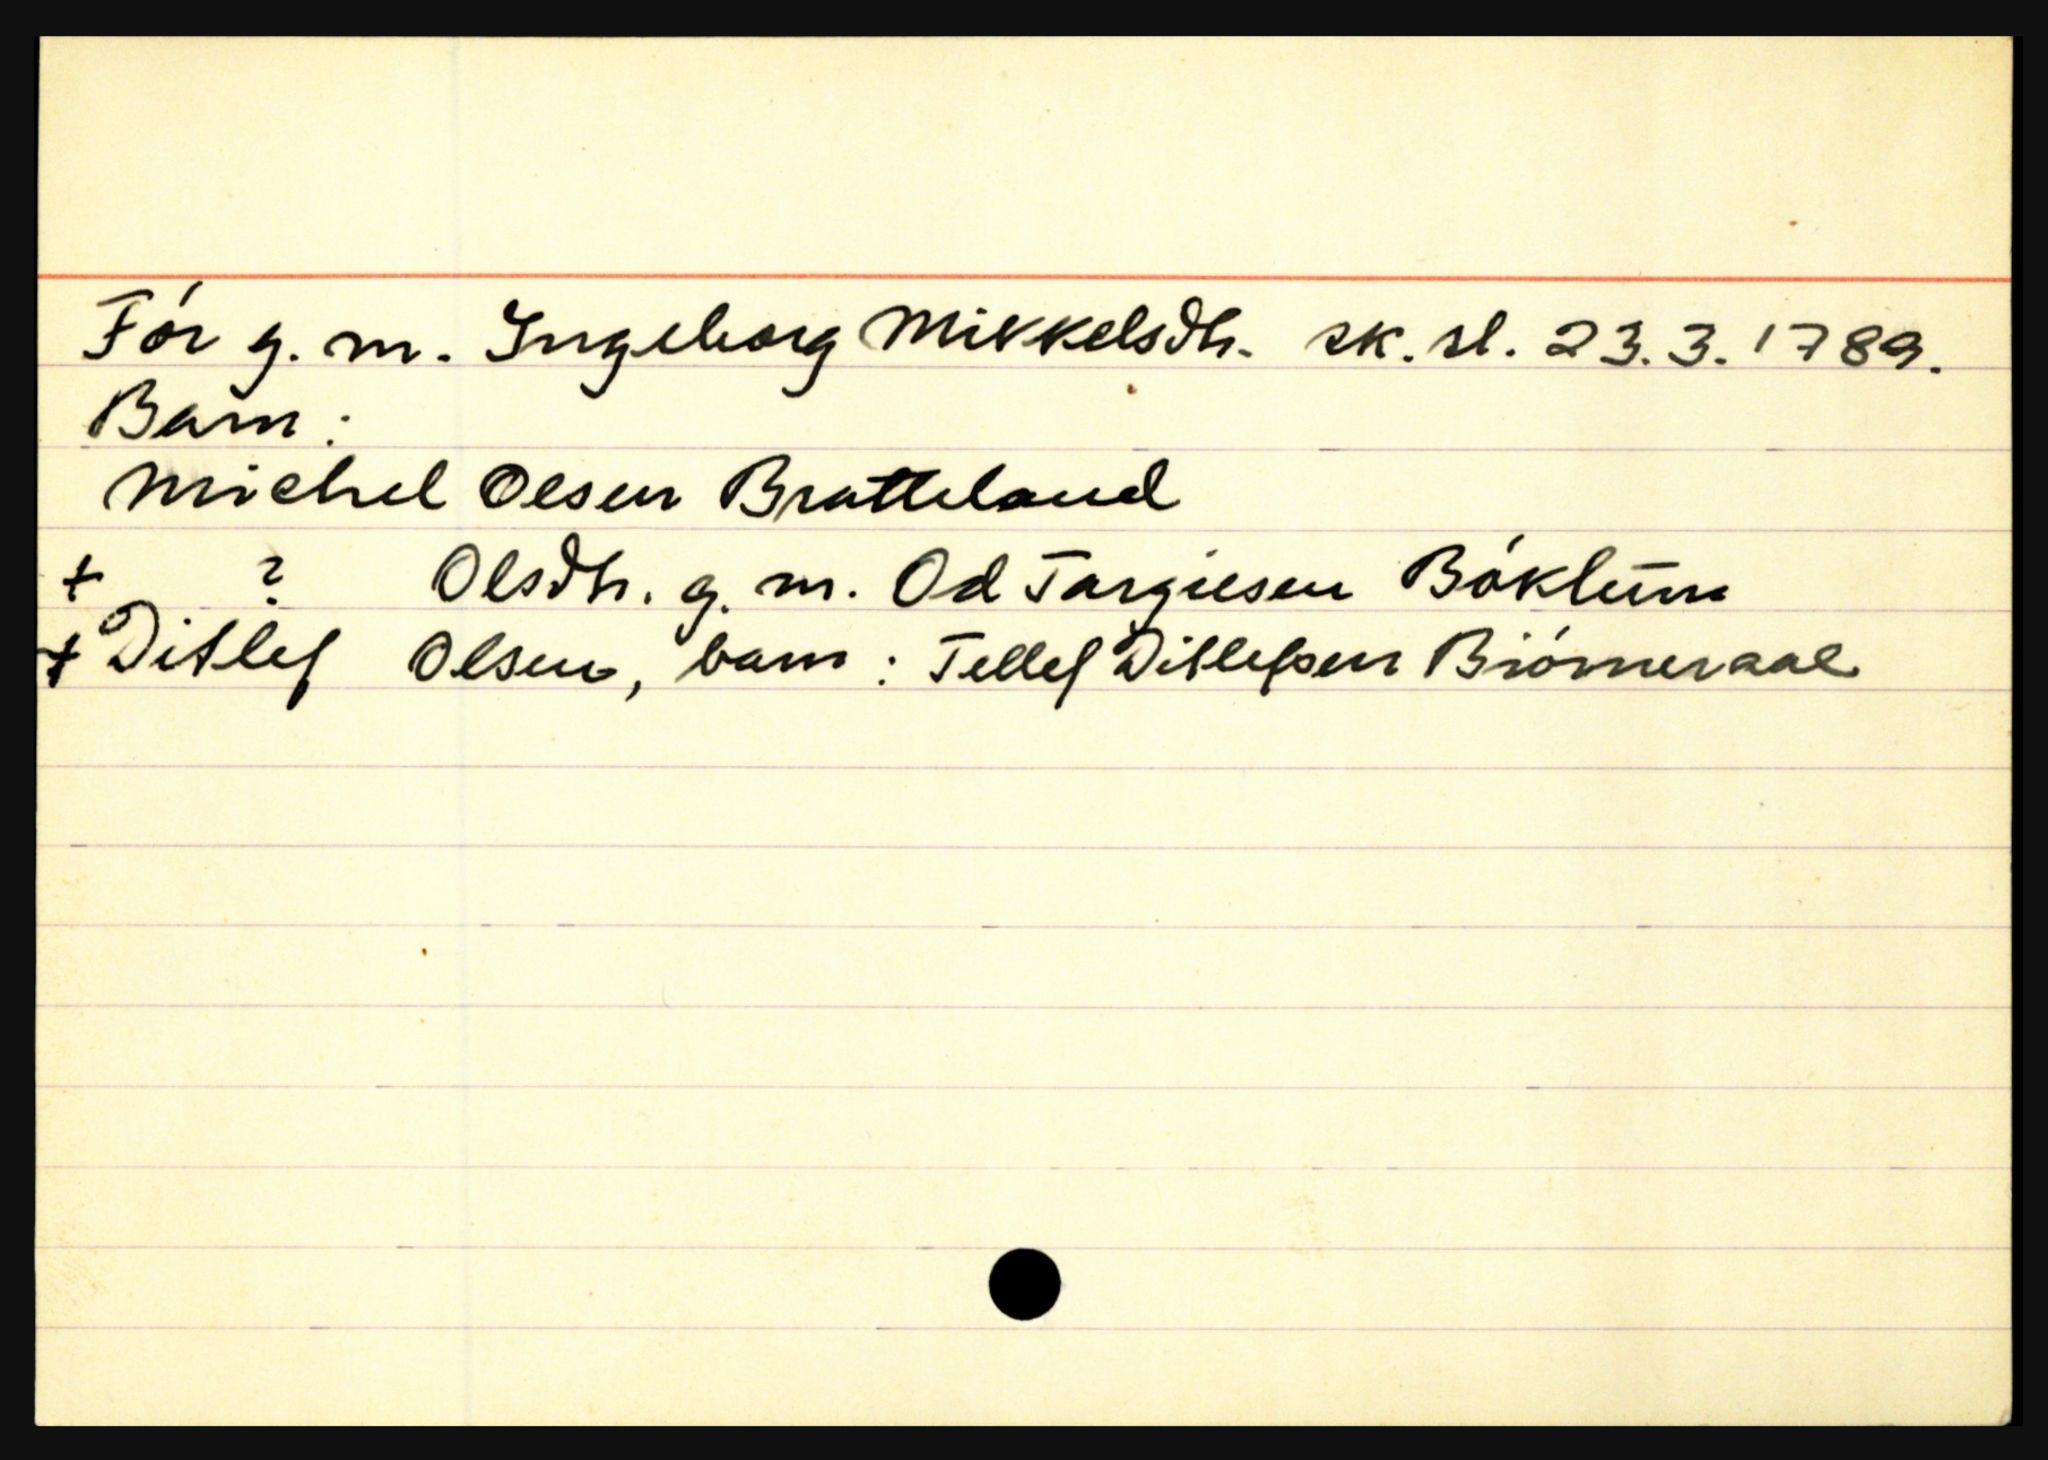 Fór g. m. Ingeborg Mikkelsdtr. sk. sl. 23.3.1789.
Barn:
Michel Olsen Bratteland
+ ? Olsdtr. g. m. Od Targiesen Bóklum
+ Ditlef Olsen, barn: Tellef Ditlefsen Biórnevaal